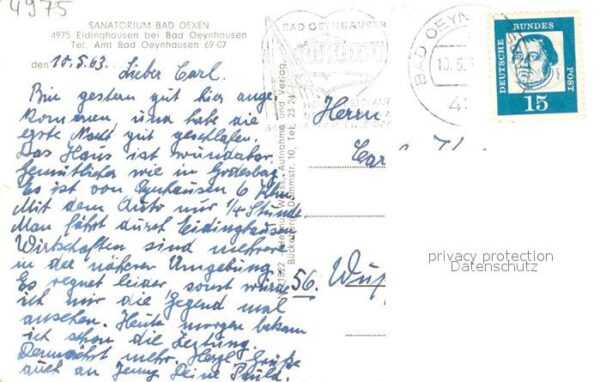 4975
SANATORIUM BAD OEXEN
4975 Eidinghausen bei Bad Oeynhausen
Tel. Amt Bad Oeynhausen 69 07
den 10.5.63.
Lieber Carl.
Bin gestern gut hier ange-
kommen und habe die
erste Nacht gut geschlafen.
Das Haus ist wunderbar
gemütlicher wie in Godesbg.
Es ist von Oynhausen 6 Klm
Mit dem Auto nur 1/4 Stunde.
Man fährt durch Eidinghausen
Wirtschaften sind mehrere
in der näheren Umgebung.
Es regnet leider, sonst würde
ich mir die Gegend mal
ansehen. Heute morgen bekam
ich schon die Zeitung.
Demnächst mehr. Herzl. Grüße
auch an Jenny Deine Paula.
Aufnahme und Verlag
Dammstr. 10, Tel. 23 24
BAD OEYNHAUSEN
BAD OEYN
10.5.
DEUTSCHE BUNDES POST
15
Herrn
Car
56. Wup
privacy protection
Datenschutz